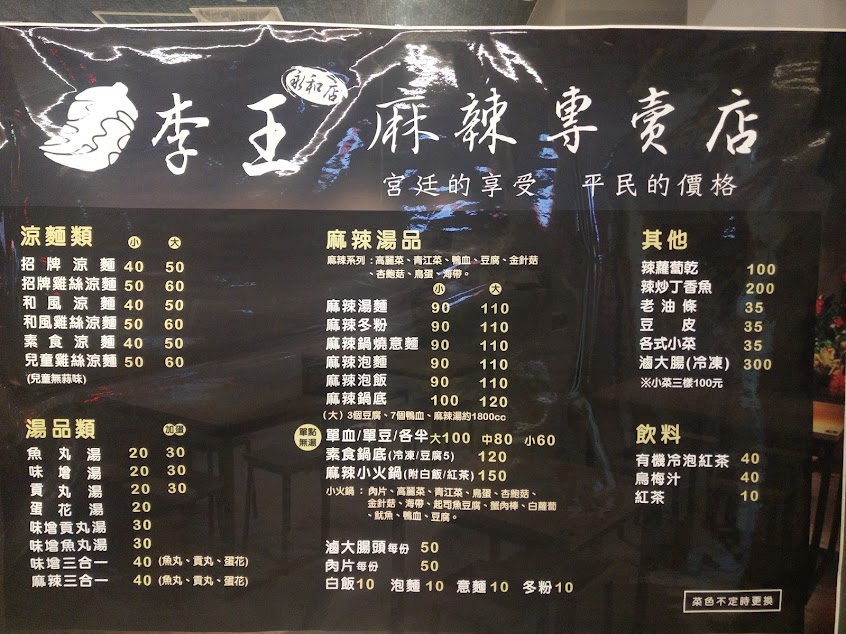 李王 永和店 麻辣專賣店
宮廷的享受 平民的價格
涼麵類 小 大
招牌涼麵 40 50
招牌雞絲涼麵 50 60
和風涼麵 40 50
和風雞絲涼麵 50 60
素食涼麵 40 50
兒童雞絲涼麵 50 60
(兒童無蒜味)
湯品類 加蛋
魚丸湯 20 30
味噌湯 20 30
貢丸湯 20 30
蛋花湯 20
味噌貢丸湯 30
味噌魚丸湯 30
味噌三合一 40 (魚丸、貢丸、蛋花)
麻辣三合一 40 (魚丸、貢丸、蛋花)
麻辣湯品
麻辣系列：高麗菜、青江菜、鴨血、豆腐、金針菇
、杏鮑菇、鳥蛋、海帶。
小 大
麻辣湯麵 90 110
麻辣冬粉 90 110
麻辣鍋燒意麵 90 110
麻辣泡麵 90 110
麻辣泡飯 90 110
麻辣鍋底 100 120
(大) 3個豆腐、7個鴨血、麻辣湯約1800cc
單點無湯 單血/單豆/各半 大100 中80 小60
素食鍋底(冷凍/豆腐5) 120
麻辣小火鍋(附白飯/紅茶) 150
小火鍋：肉片、高麗菜、青江菜、鳥蛋、杏鮑菇、
金針菇、海帶、起司魚豆腐、蟹肉棒、白蘿蔔
、魷魚、鴨血、豆腐。
滷大腸頭每份 50
肉片每份 50
白飯10 泡麵10 意麵10 冬粉10
其他
辣蘿蔔乾 100
辣炒丁香魚 200
老油條 35
豆皮 35
各式小菜 35
滷大腸(冷凍) 300
※小菜三樣100元
飲料
有機冷泡紅茶 40
烏梅汁 40
紅茶 10
菜色不定時更換